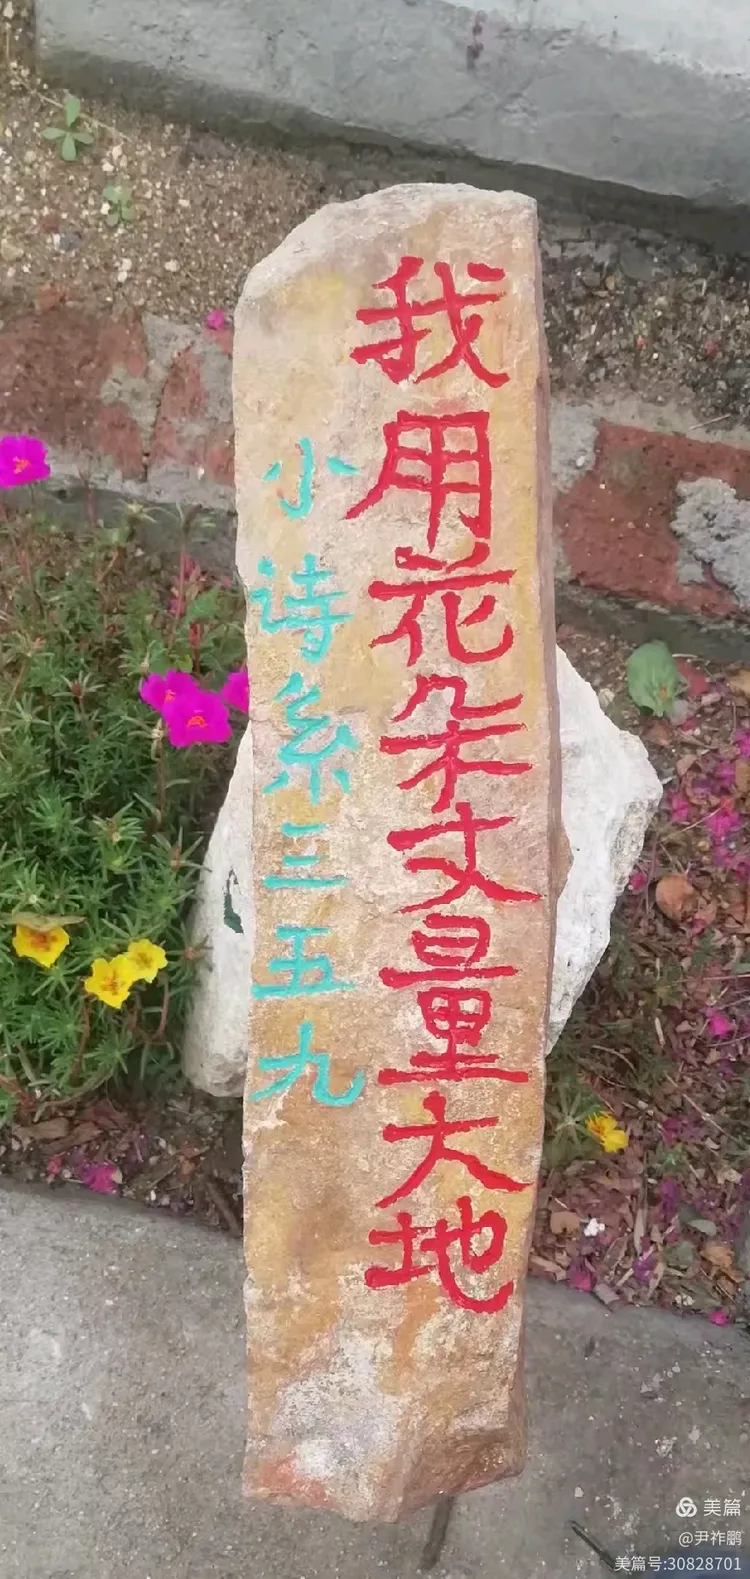 我用花朵丈量大地
小诗系三五九
美篇
@尹祚鹏
美篇号:30828701